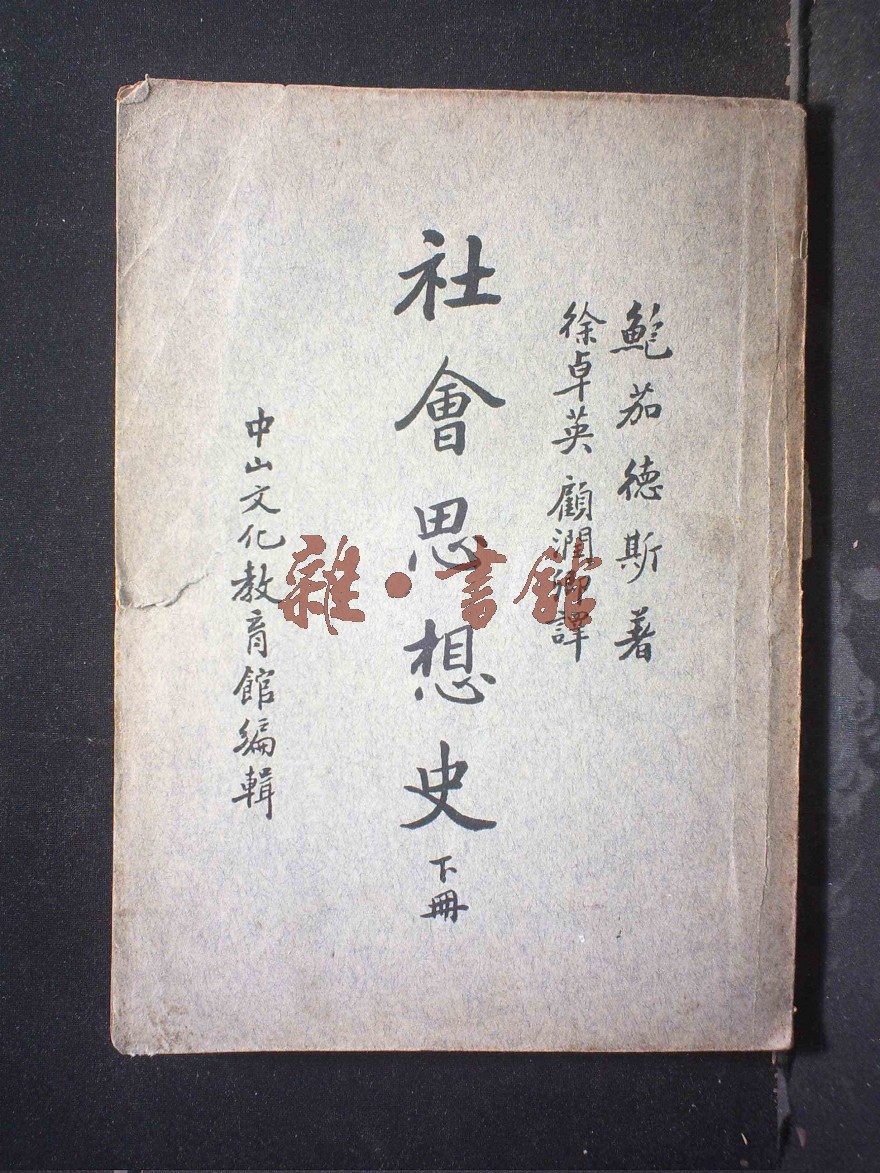 鮑茄德斯著
徐卓英 顧潤卿譯
社會思想史 下冊
中山文化教育館編輯
雜·書館